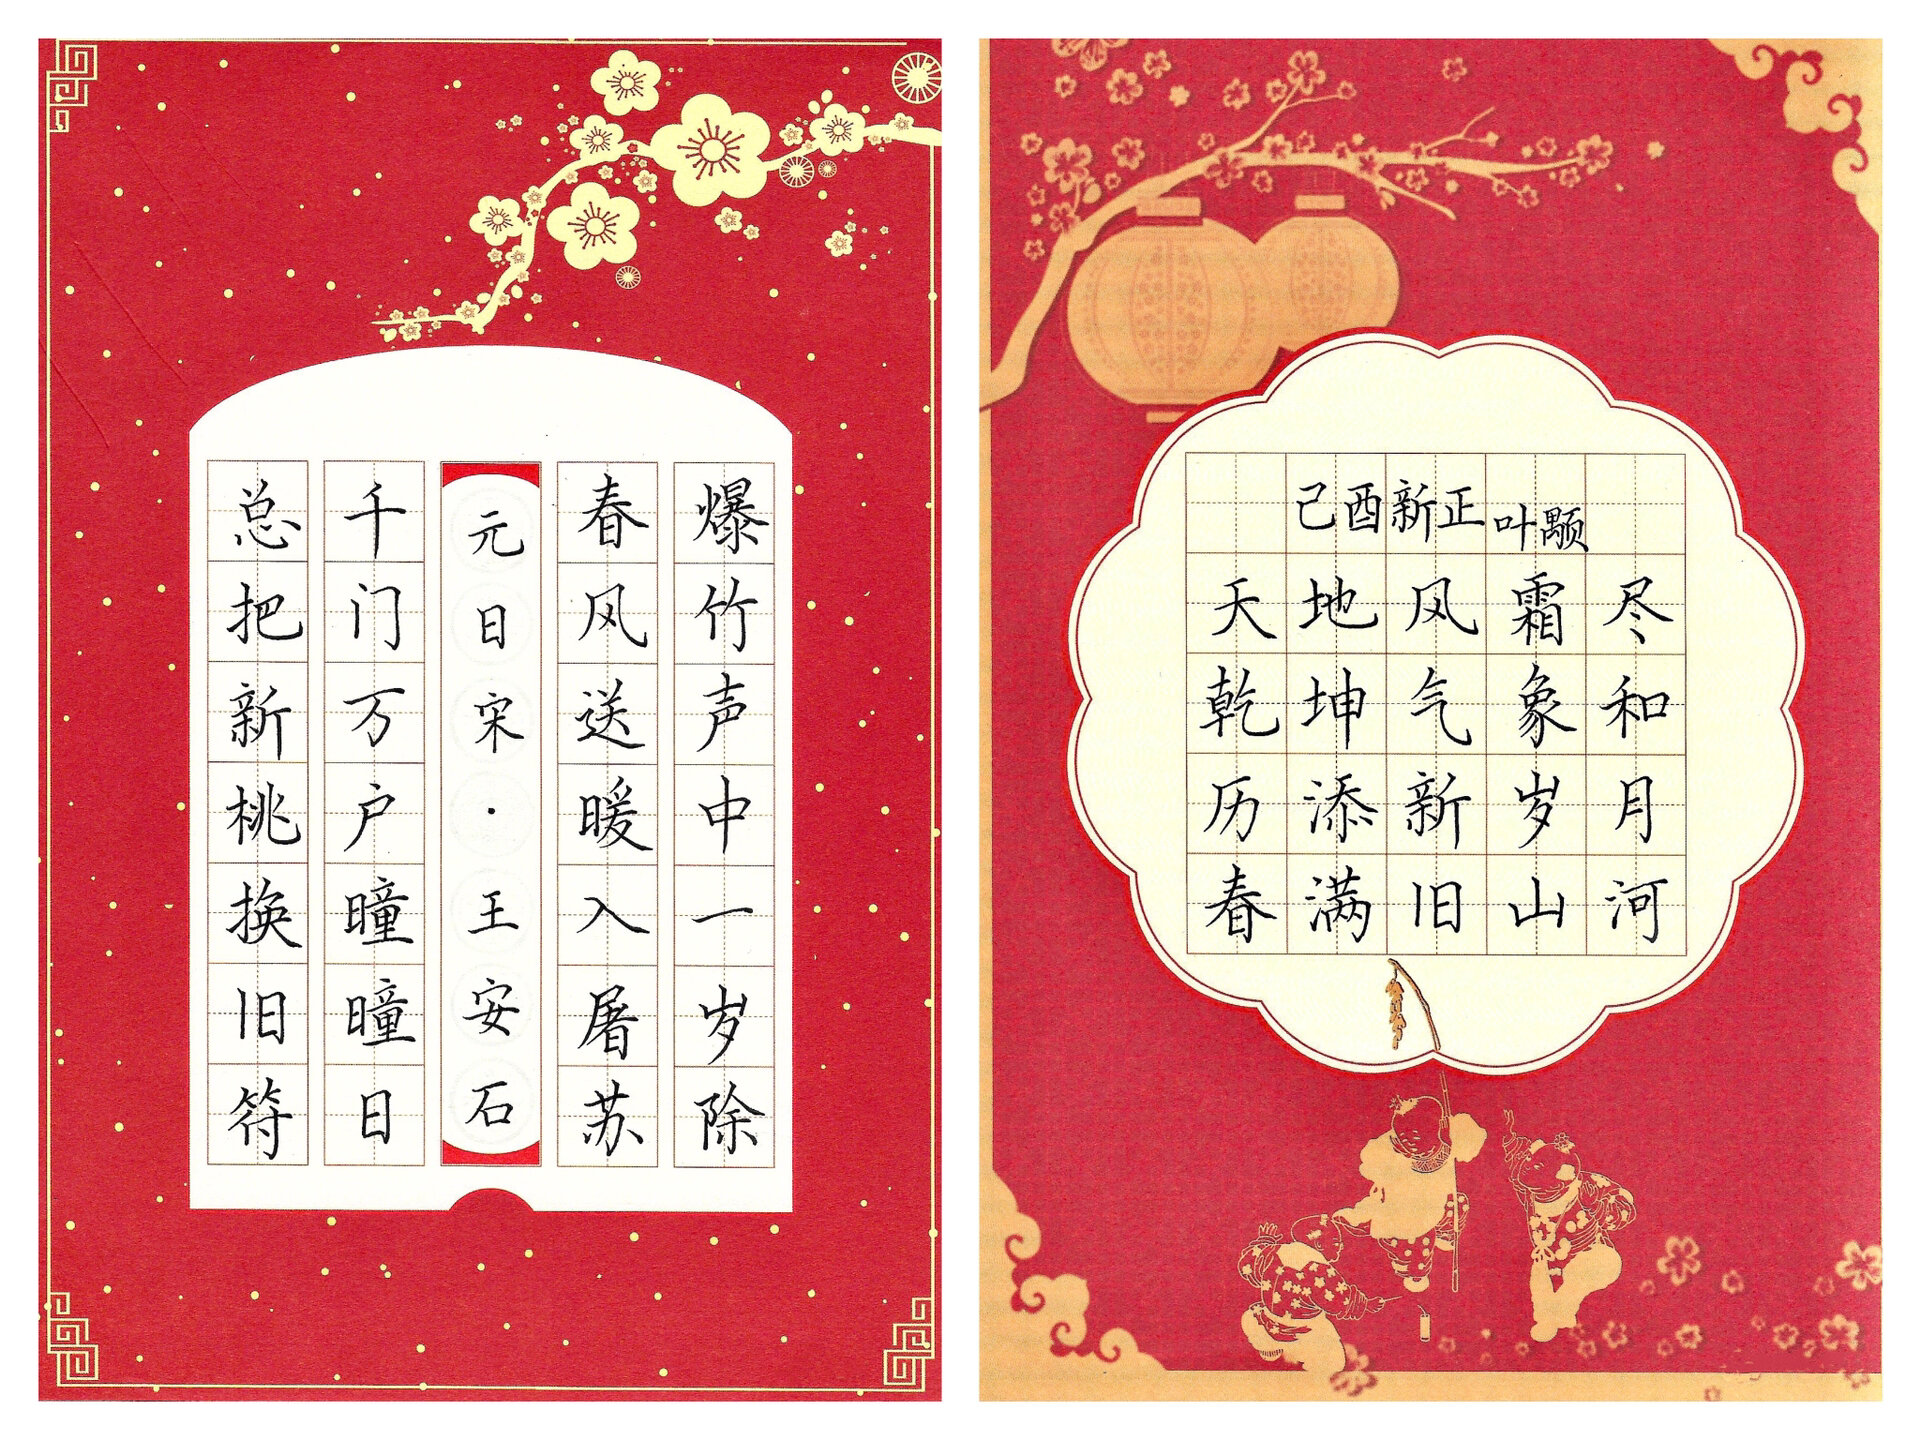 爆竹声中一岁除
春风送暖入屠苏
元日宋·王安石
千门万户曈曈日
总把新桃换旧符
己酉新正 叶颙
天地风霜尽
乾坤气象和
历添新岁月
春满旧山河